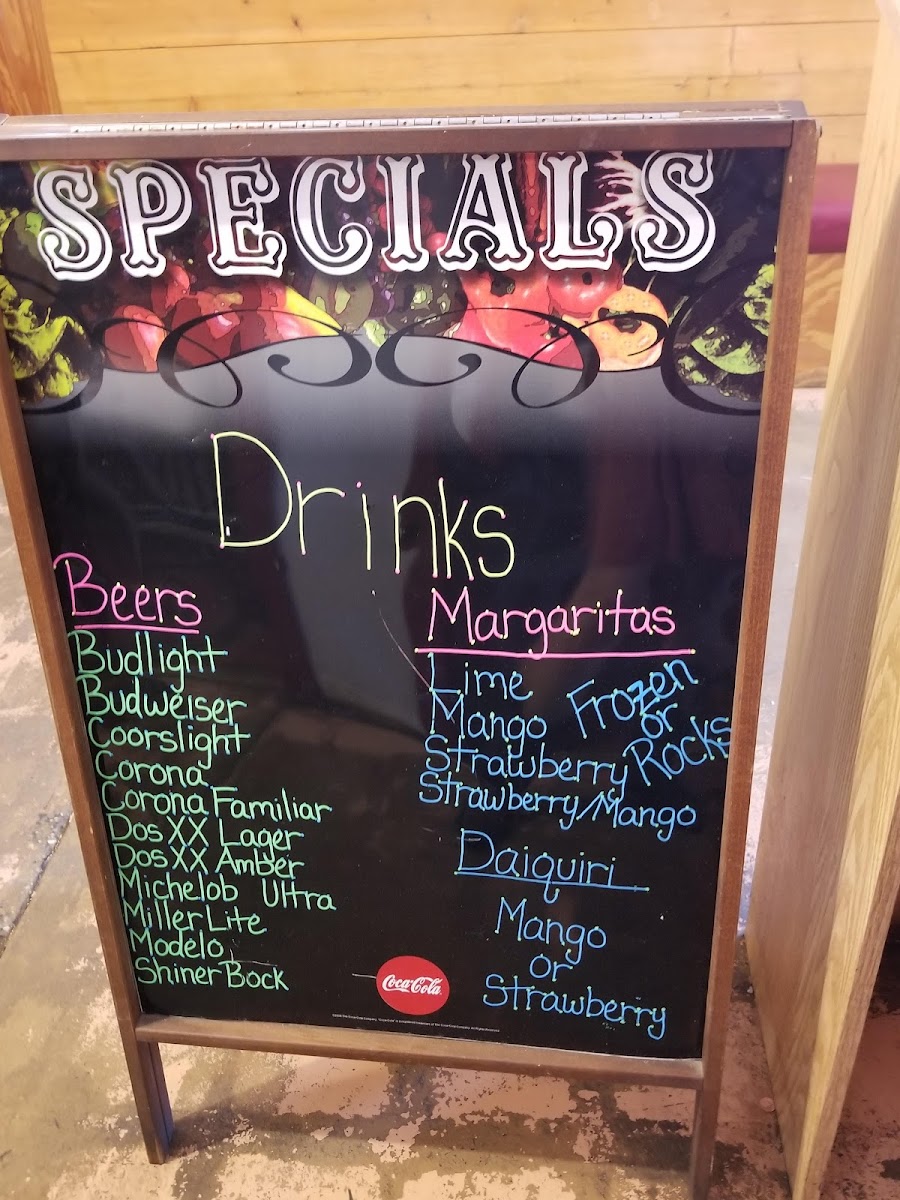 SPECIALS
Drinks
Beers
Budlight
Budweiser
Coorslight
Corona
Corona Familiar
Dos XX Lager
Dos XX Amber
Michelob Ultra
Miller Lite
Modelo
Shiner Bock
Margaritas
Lime
Mango
Strawberry
Strawberry/Mango
Frozen
or
Rocks
Daiquiri
Mango
or
Strawberry
Coca-Cola